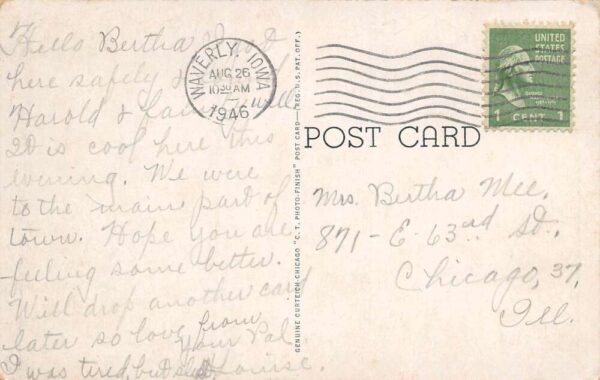 Hello Bertha I got
here safely &
Harold &
It is cool here this
evening. We were
to the main part of
town. Hope you are
feeling some better.
Will drop another card
later so love from
your Pal
I was tired but Louise.
WAVERLY, IOWA
AUG 26
10 30 AM
1946
GENUINE CURTEICH-CHICAGO "C.T. PHOTO-FINISH" POST CARD—(REG. U.S. PAT. OFF.)
POST CARD
UNITED
STATES
POSTAGE
GEORGE
1 CENT 1
Mrs. Bertha Mee.
871-E-63rd St.
Chicago, 37,
Ill.